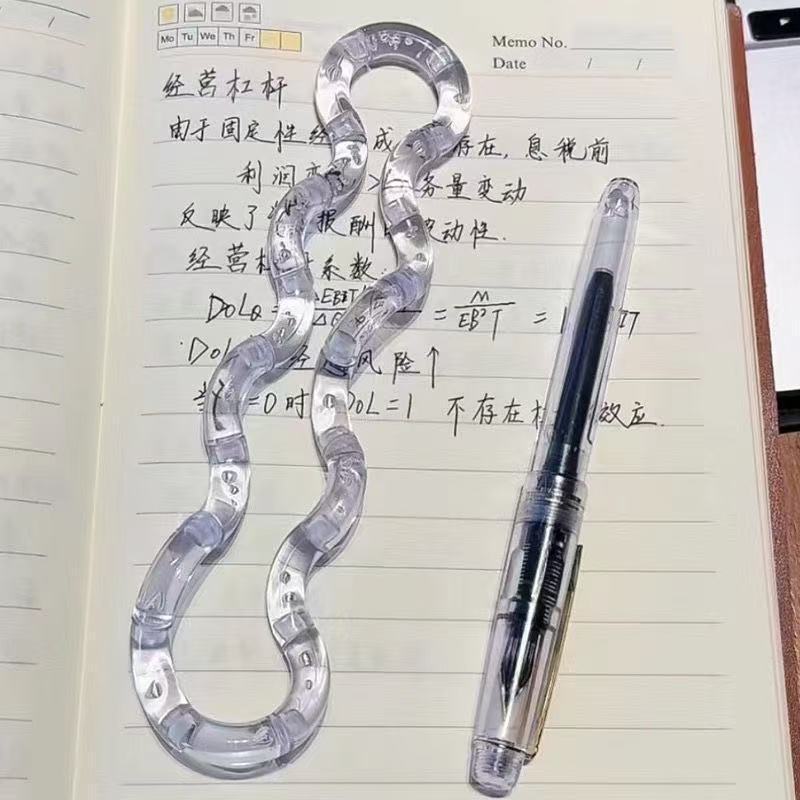 Mo Tu We Th Fr
Memo No.
Date / /
经营杠杆
由于固定性经 成 存在, 息税前
利润变 > 务量变动
反映了 报酬 波动性.
经营杠 系数:
DOLQ = = M/EBIT = 1
DOL 经 风险↑
当 =0时 DOL=1 不存在杠 效应.